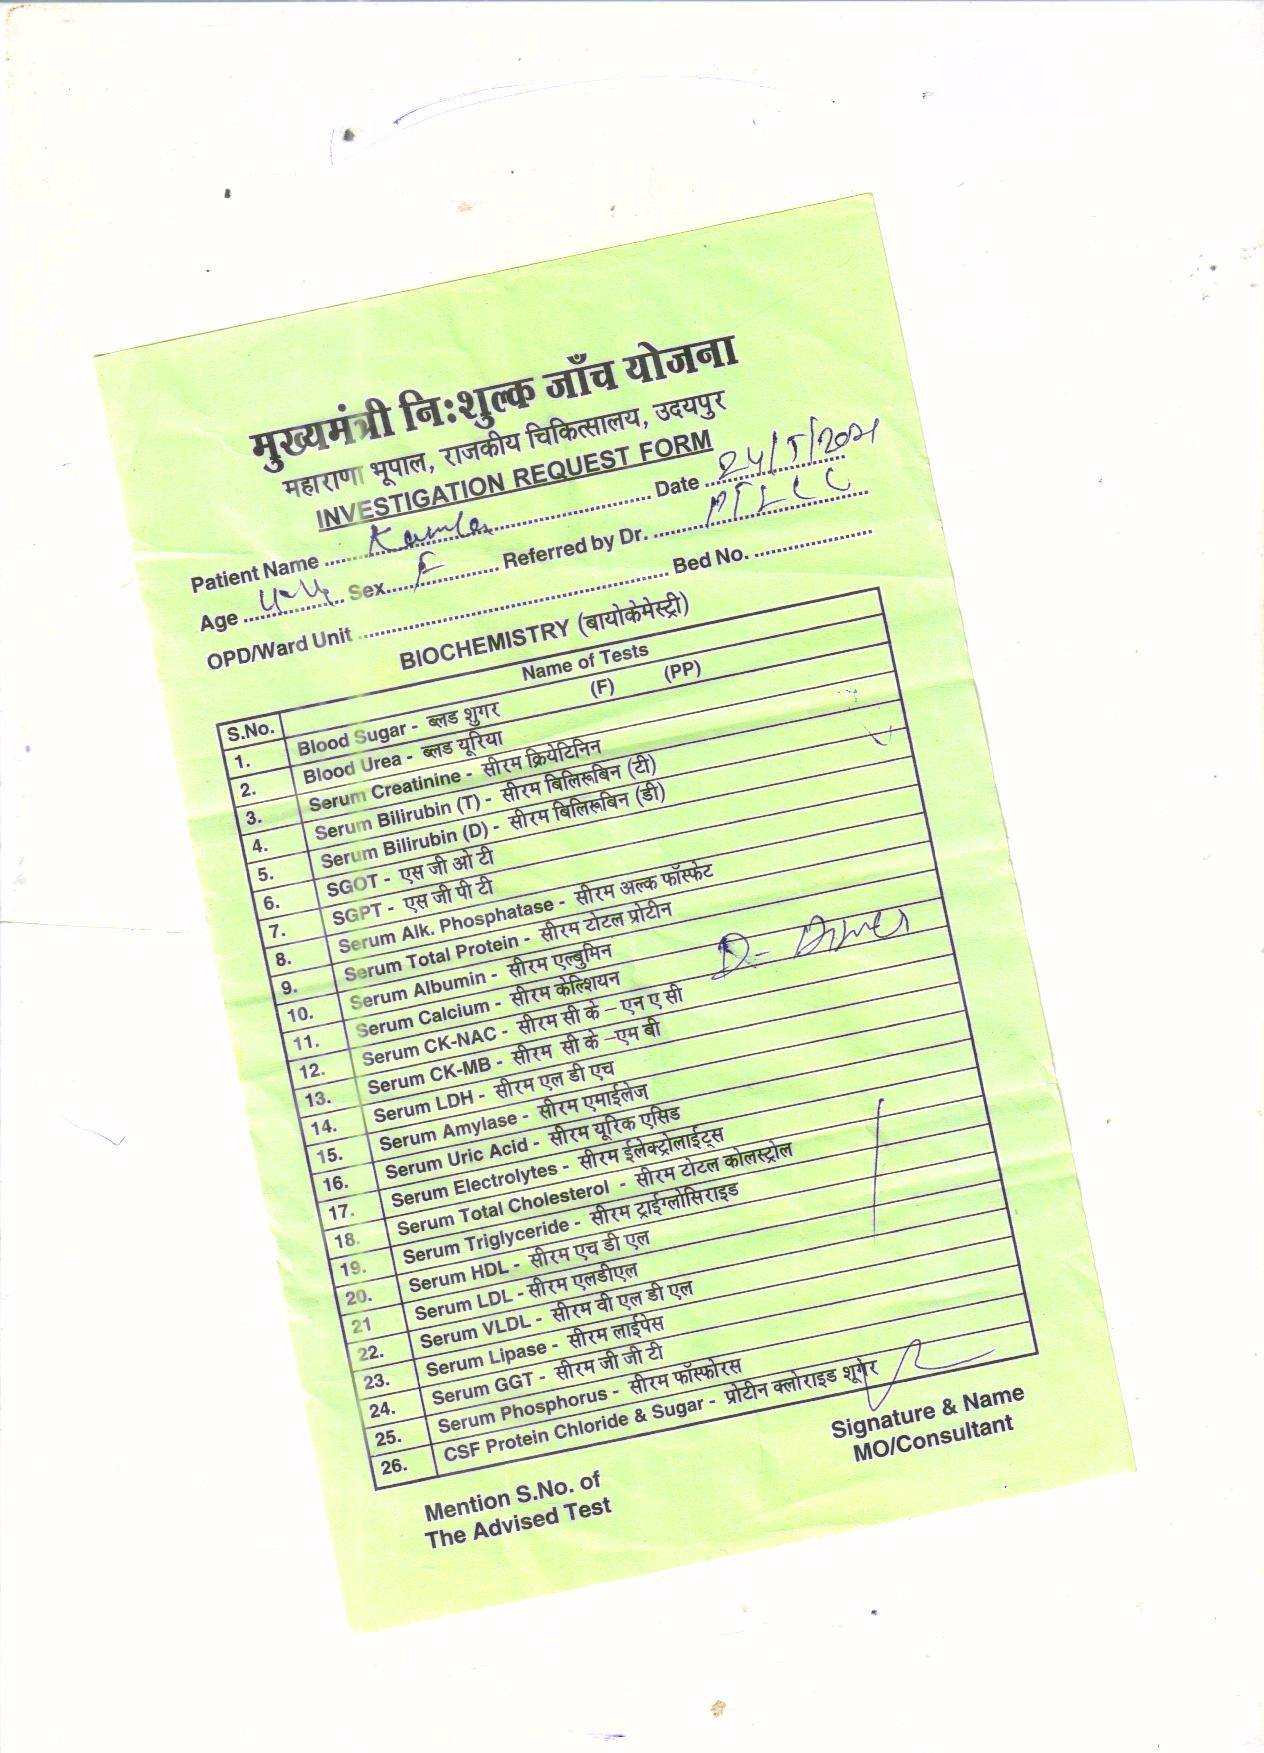 मुख्यमंत्री नि:शुल्क जाँच योजना
महाराणा भूपाल, राजकीय चिकित्सालय, उदयपुर
INVESTIGATION REQUEST FORM
Patient Name Kamla Date 24/5/2021
Age Sex F Referred by Dr.
OPD/Ward Unit Bed No.
BIOCHEMISTRY (बायोकेमेस्ट्री)
S.No. Name of Tests
1. Blood Sugar - ब्लड शुगर (F) (PP)
2. Blood Urea - ब्लड यूरिया
3. Serum Creatinine - सीरम क्रियेटिनिन
4. Serum Bilirubin (T) - सीरम बिलिरूबिन (टी)
5. Serum Bilirubin (D) - सीरम बिलिरूबिन (डी)
6. SGOT - एस जी ओ टी
7. SGPT - एस जी पी टी
8. Serum Alk. Phosphatase - सीरम अल्क फॉस्फेट
9. Serum Total Protein - सीरम टोटल प्रोटीन
10. Serum Albumin - सीरम एल्बुमिन
11. Serum Calcium - सीरम केल्शियन
12. Serum CK-NAC - सीरम सी के – एन ए सी
13. Serum CK-MB - सीरम सी के –एम बी
14. Serum LDH - सीरम एल डी एच
15. Serum Amylase - सीरम एमाईलेज
16. Serum Uric Acid - सीरम यूरिक एसिड
17. Serum Electrolytes - सीरम ईलेक्ट्रोलाईट्स
18. Serum Total Cholesterol - सीरम टोटल कोलस्ट्रोल
19. Serum Triglyceride - सीरम ट्राईग्लोसिराइड
20. Serum HDL - सीरम एच डी एल
21 Serum LDL - सीरम एलडीएल
22. Serum VLDL - सीरम वी एल डी एल
23. Serum Lipase - सीरम लाईपेस
24. Serum GGT - सीरम जी जी टी
25. Serum Phosphorus - सीरम फॉस्फोरस
26. CSF Protein Chloride & Sugar - प्रोटीन क्लोराइड शूगेर
D- Dimer
Mention S.No. of
The Advised Test
Signature & Name
MO/Consultant